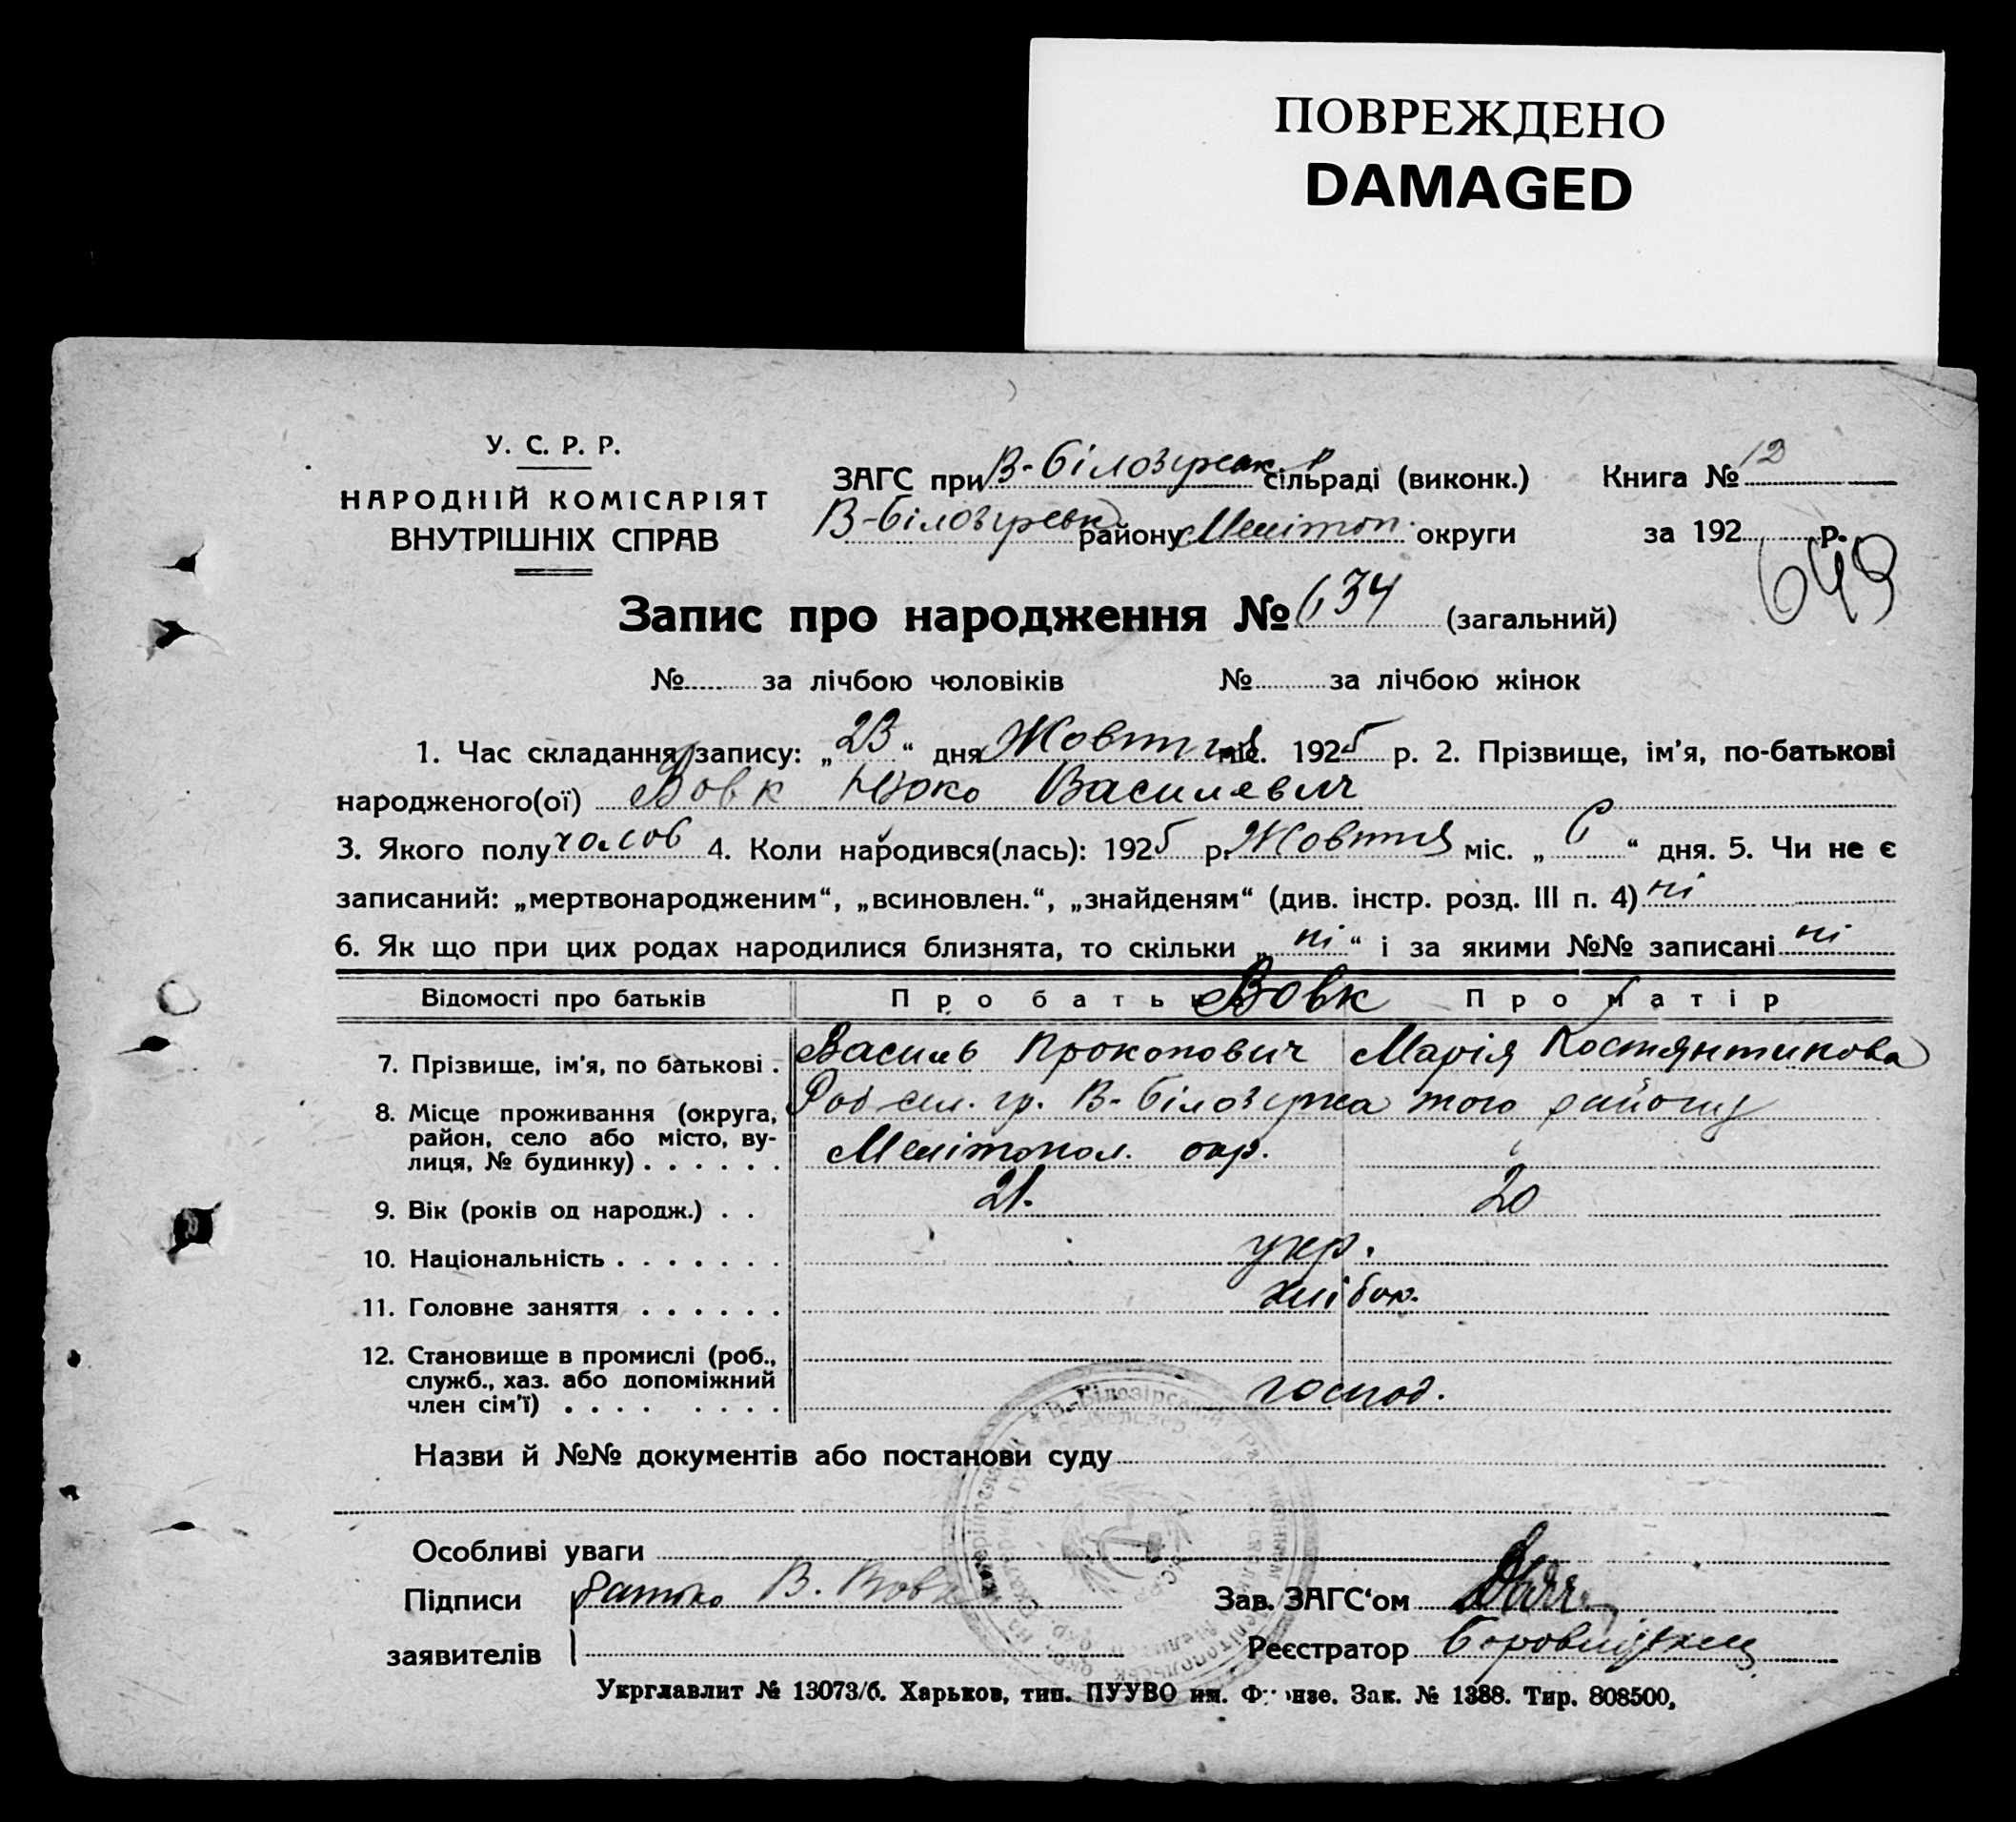 ПОВРЕЖДЕНО
DAMAGED
У. С. Р. Р.
НАРОДНІЙ КОМІСАРІЯТ
ВНУТРІШНІХ СПРАВ
ЗАГС при В-Білозирськ сільраді (виконк.) Книга № 12
В-Білозирськ району Мелітоп. округи за 192 р.
649
Запис про народження № 634 (загальний)
№ за лічбою чоловіків № за лічбою жінок
1. Час складання запису: „23“ дня Жовтня міс. 1925 р. 2. Прізвище, ім'я, по-батькові
народженого(ої) Вовк Юрко Василевич
3. Якого полу чолов 4. Коли народився(лась): 1925 р. Жовтня міс. „6“ дня. 5. Чи не є
записаний: „мертвонародженим“, „всиновлен.“, „знайденям“ (див. інстр. розд. III п. 4) ні
6. Як що при цих родах народилися близнята, то скільки „ні“ і за якими №№ записані ні
Відомості про батьків Про батька Вовк Про матір
7. Прізвище, ім'я, по батькові . Василь Прокопович Марія Костянтинова
8. Місце проживання (округа, сел. гр. В-Білозирка того району
район, село або місто, ву-
лиця, № будинку) . . . . . . Мелітопол. окр.
9. Вік (років од народж.) . . 21. 20
10. Національність . . . . . . . укр.
11. Головне заняття . . . . . . хлібор.
12. Становище в промислі (роб.,
служб., хаз. або допоміжний
член сім'ї) . . . . . . . . господ.
Назви й №№ документів або постанови суду
Особливі уваги
Підписи Батько В. Вовк Зав. ЗАГС‘ом
заявителів Реєстратор
Укрглавлит № 13073/б. Харьков, тип. ПУУВО им. Фрунзе. Зак. № 1388. Тир. 808500,